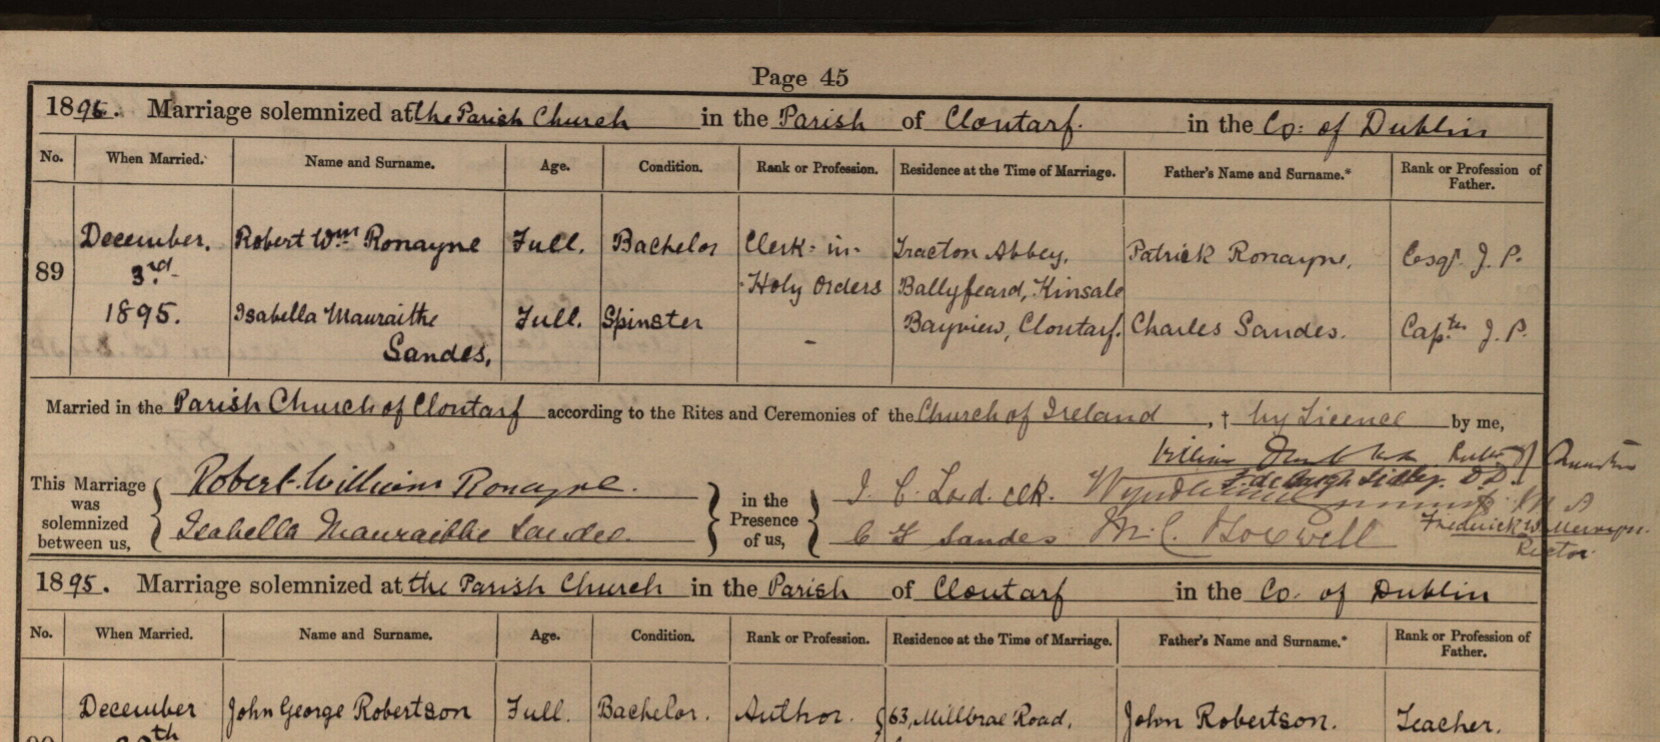 Page 45
1895. Marriage solemnized at the Parish Church in the Parish of Clontarf. in the Co: of Dublin
No. When Married. Name and Surname. Age. Condition. Rank or Profession. Residence at the Time of Marriage. Father's Name and Surname.* Rank or Profession of Father.
89
December, Robert Wm Ronayne Full. Bachelor Clerk-in- Tracton Abbey, Patrick Ronayne, Esqr. J. P.
3rd Holy Orders Ballyfeard, Kinsale
1895. Isabella Mauraithe Full. Spinster - Bayview, Clontarf. Charles Sandes. Captn J. P.
Sandes,
Married in the Parish Church of Clontarf according to the Rites and Ceremonies of the Church of Ireland, † by Licence by me,
William
F. de Burgh Sidley. D D.
This Marriage was solemnized between us,
Robert William Ronayne.
Isabella Mauraithe Sandes.
in the Presence of us,
C F Sandes M. C. Boxwell
Frederick W.
Rector.
1895. Marriage solemnized at the Parish Church in the Parish of Clontarf in the Co. of Dublin
No. When Married. Name and Surname. Age. Condition. Rank or Profession. Residence at the Time of Marriage. Father's Name and Surname.* Rank or Profession of Father.
December John George Robertson Full. Bachelor. Author. 63, Millbrae Road, John Robertson. Teacher.